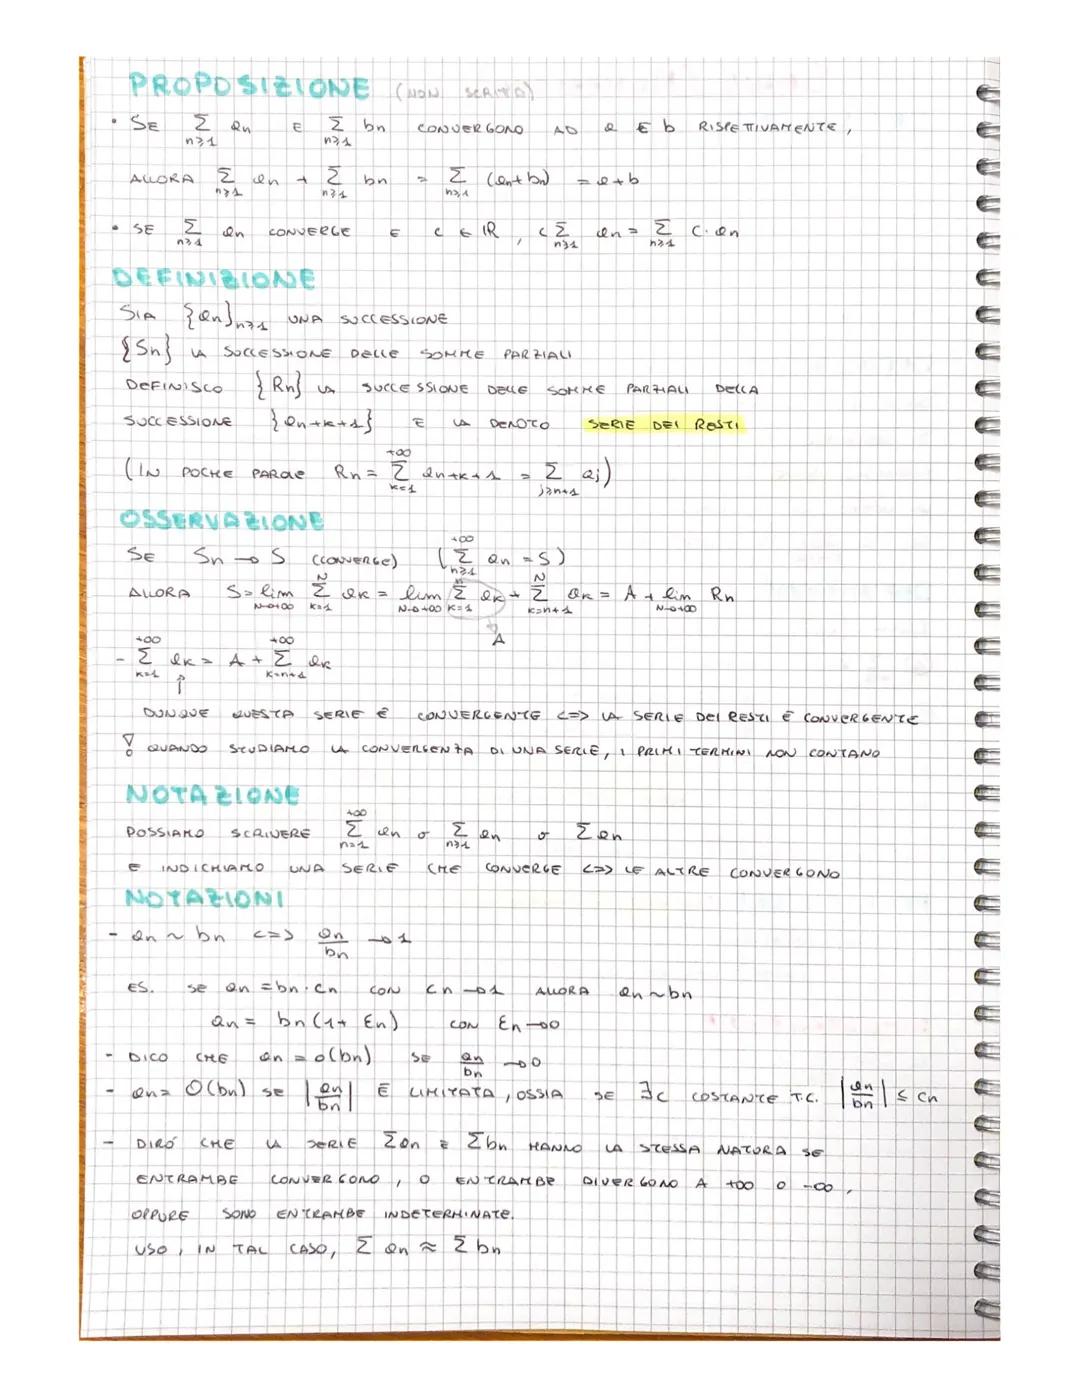 PROPOSIZIONE (NON SCRITTA)
• SE Σ_{n≥1} an E Σ_{n≥1} bn CONVERGONO AD a E b RISPETTIVAMENTE,
ALLORA Σ_{n≥1} an + Σ_{n≥1} bn = Σ_{n≥1} (an+bn) = a+b
• SE Σ_{n≥1} an CONVERGE E C ∈ ℝ, C Σ_{n≥1} an = Σ_{n≥1} C·an
DEFINIZIONE
SIA {an}n≥1 UNA SUCCESSIONE
{Sn} LA SUCCESSIONE DELLE SOMME PARZIALI
DEFINISCO {Rn} LA SUCCESSIONE DELLE SOMME PARZIALI DELLA
SUCCESSIONE {an+k+1} E LA DENOTO SERIE DEI RESTI
(IN POCHE PAROLE Rn = Σ_{k=1}^{+∞} an+k+1 = Σ_{j≥n+1} aj)
OSSERVAZIONE
SE Sn → S (CONVERGE) (Σ_{n≥1}^{+∞} an = S)
ALLORA S = lim_{N→+∞} Σ_{k=1}^{N} ak = lim_{N→+∞} Σ_{k=1}^{n} ak + Σ_{k=n+1}^{N} ak = A + lim_{N→+∞} Rn
A
- Σ_{k=1}^{+∞} ak = A + Σ_{k=n+1}^{+∞} ak
↑
DUNQUE QUESTA SERIE È CONVERGENTE <=> LA SERIE DEI RESTI È CONVERGENTE
! QUANDO STUDIAMO LA CONVERGENZA DI UNA SERIE, I PRIMI TERMINI NON CONTANO
NOTAZIONE
POSSIAMO SCRIVERE Σ_{n=1}^{+∞} an o Σ_{n≥1} an o Σ an
E INDICHIAMO UNA SERIE CHE CONVERGE <=> LE ALTRE CONVERGONO
NOTAZIONI
- an ~ bn <=> an/bn → 1
ES. SE an = bn·cn CON cn → 1 ALLORA an ~ bn
an = bn(1+ εn) CON εn → 0
- DICO CHE an = o(bn) SE an/bn → 0
- an = O(bn) SE |an/bn| È LIMITATA, OSSIA SE ∃c COSTANTE T.C. |an/bn| ≤ cn
- DIRÒ CHE LA SERIE Σan E Σbn HANNO LA STESSA NATURA SE
ENTRAMBE CONVERGONO, O ENTRAMBE DIVERGONO A +∞ O -∞,
OPPURE SONO ENTRAMBE INDETERMINATE.
USO, IN TAL CASO, Σ an ≈ Σ bn